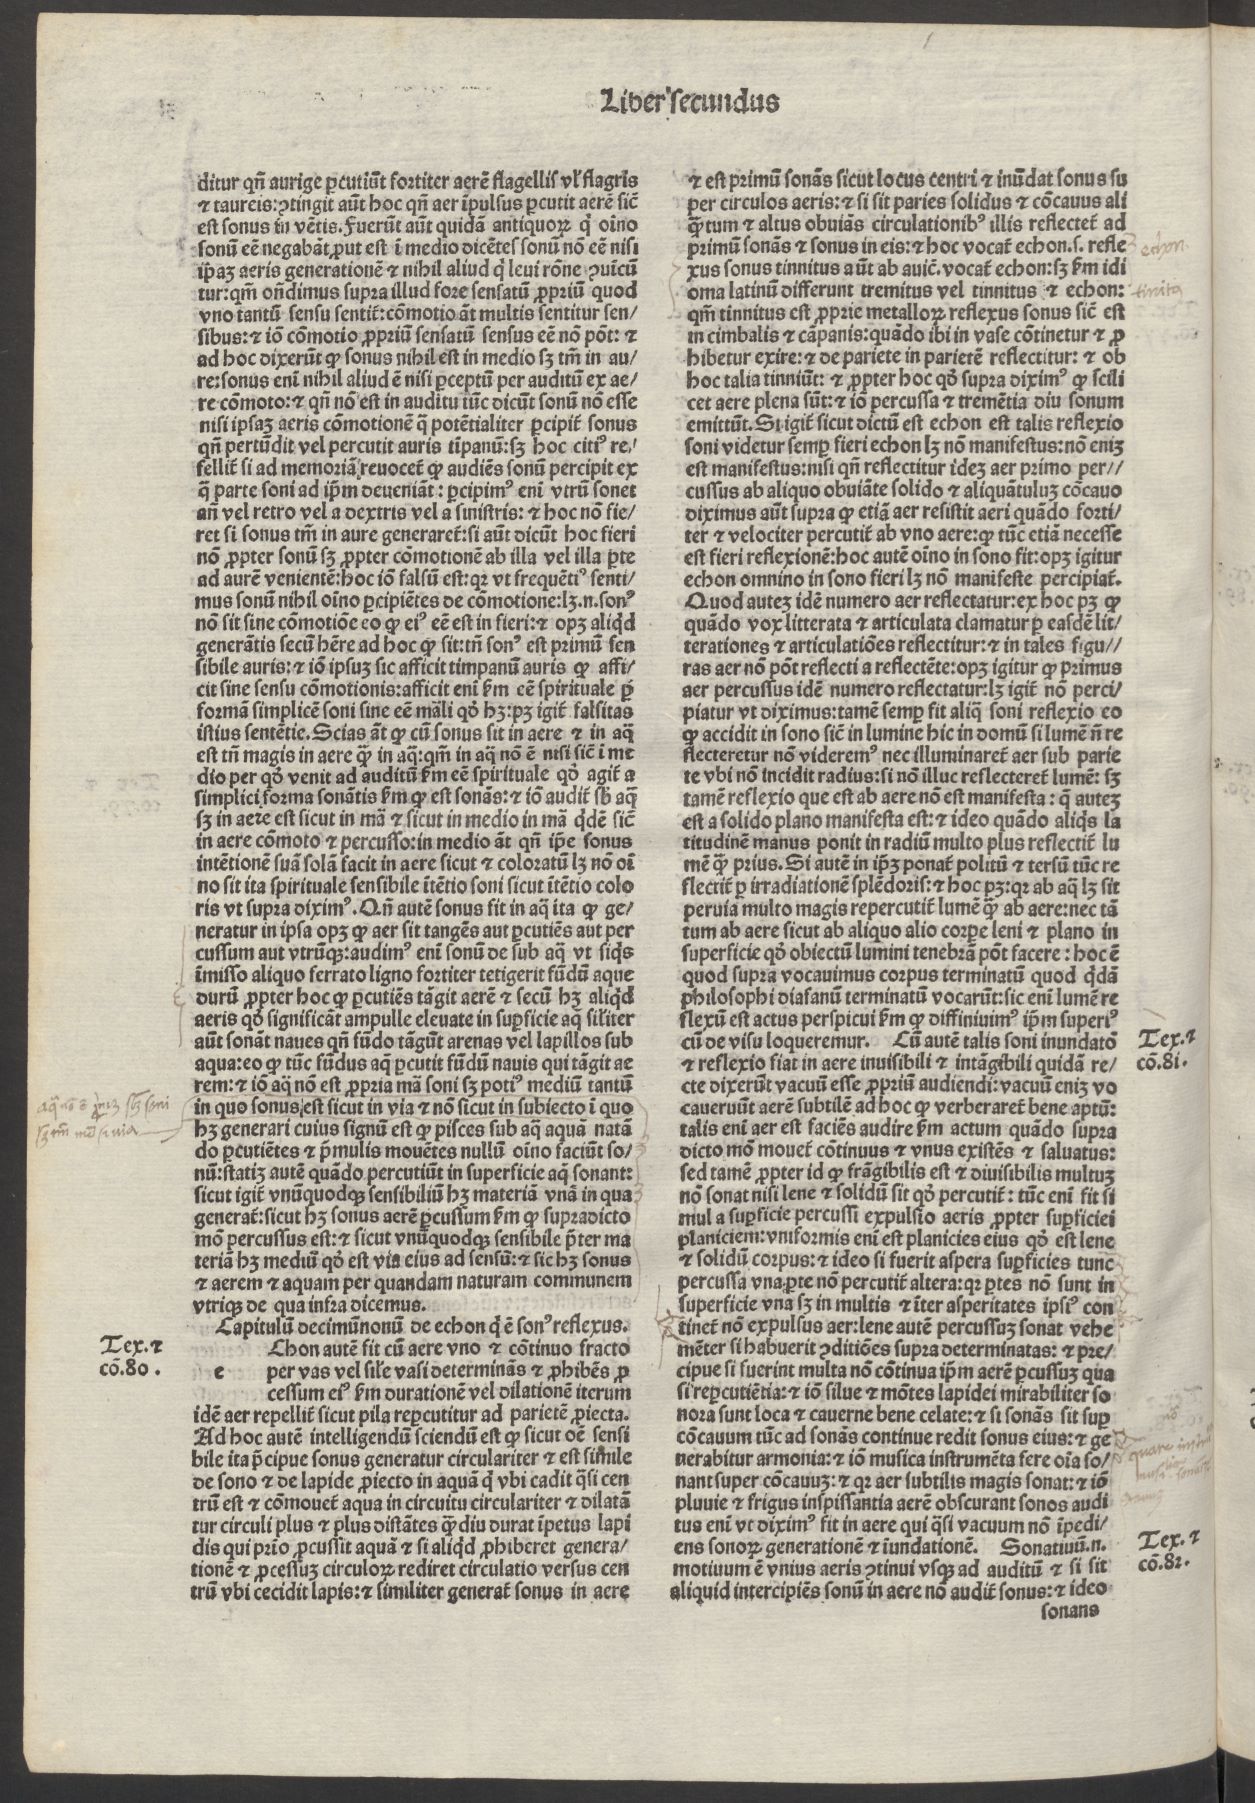 Liber secundus
ditur qñ aurige ꝑcutiũt fortiter aerẽ flagellis vl' flagris
⁊ taureis: ꝯtingit aũt hoc qñ aer ĩpulsus ꝑcutit aerẽ sic̃
est sonus in vẽtis. Fuerũt aũt quidã antiquoꝝ q' oĩno
sonũ eẽ negabãt, put est ĩ medio dicẽtes sonũ nõ eẽ nisi
ip̃aꝫ aeris generationẽ ⁊ nihil aliud q' leui rõne ꝯuĩcũ
tur: qm̃ oñdimus supra illud fore sensatũ ꝓpriũ quod
vno tantũ sensu sentit̃: cõmotio ãt multis sentitur sen/
sibus: ⁊ iõ cõmotio ꝓpriũ sensatũ sensus eẽ nõ põt: ⁊
ad hoc dixerũt ꝙ sonus nihil est in medio sꝫ tm̃ in au/
re: sonus eni nihil aliud ẽ nisi ꝑceptũ per auditũ ex ae/
re cõmoto: ⁊ qñ nõ est in auditu tũc dicũt sonũ nõ esse
nisi ipsaꝫ aeris cõmotionẽ q̃ potẽtialiter ꝑcipit̃ sonus
qñ pertũdit vel percutit auris tĩpanũ: sꝫ hoc citiꝰ re/
fellit̃ si ad memoriã reuocet̃ ꝙ audiẽs sonũ percipit ex
q̃ parte soni ad ip̃m deueniãt: ꝑcipimꝰ eni vtrũ sonet
añ vel retro vel a dextris vel a sinistris: ⁊ hoc nõ fie/
ret si sonus tm̃ in aure generaret̃: si aũt dicũt hoc fieri
nõ ꝓpter sonũ sꝫ ꝓpter cõmotionẽ ab illa vel illa ꝑte
ad aurẽ venientẽ: hoc iõ falsũ est: qꝛ vt frequẽtiꝰ senti/
mus sonũ nihil oĩno ꝑcipiẽtes de cõmotione: lꝫ .n. sonꝰ
nõ sit sine cõmotiõe eo ꝙ eiꝰ eẽ est in fieri: ⁊ opꝫ aliq'd
generãtis secũ hẽre ad hoc ꝙ sit: tñ sonꝰ est primũ sen
sibile auris: ⁊ iõ ipsuꝫ sic afficit timpanũ auris ꝙ affi/
cit sine sensu cõmotionis: afficit eni km̃ eẽ spirituale p̱
formã simplicẽ soni sine eẽ mãli qõ hꝫ: pꝫ igit̃ falsitas
istius sentẽtie. Scias ãt ꝙ cũ sonus sit in aere ⁊ in aq̃
est tñ magis in aere q̃ꝫ in aq̃: qm̃ in aq̃ nõ ẽ nisi sic̃ ĩ me
dio per qõ venit ad auditũ km̃ eẽ spirituale qõ agit̃ a
simplici forma sonãtis km̃ ꝙ est sonãs: ⁊ iõ audit̃ sb̃ aq̃
sꝫ in aere est sicut in mã ⁊ sicut in medio in mã q'dẽ sic̃
in aere cõmoto ⁊ percusso: in medio ãt qñ ip̃e sonus
intẽtionẽ suã solã facit in aere sicut ⁊ coloratũ lꝫ nõ oĩ
no sit ita spirituale sensibile ĩtẽtio soni sicut ĩtẽtio colo
ris vt supra diximꝰ. Qñ autẽ sonus fit in aq̃ ita ꝙ ge/
neratur in ipsa opꝫ ꝙ aer sit tangẽs aut ꝑcutiẽs aut per
cussum aut vtrũqꝫ: audimꝰ eni sonũ de sub aq̃ vt siq's
ĩmisso aliquo ferrato ligno fortiter tetigerit fũdũ aque
durũ ꝓpter hoc ꝙ ꝑcutiẽs tãgit aerẽ ⁊ secũ hꝫ aliq'd
aeris qõ significãt ampulle eleuate in suꝑficie aq̃ sil'iter
aũt sonãt naues qñ fũdo tãgũt arenas vel lapillos sub
aqua: eo ꝙ tũc fũdus aq̃ ꝑcutit fũdũ nauis qui tãgit ae
rem: ⁊ iõ aq̃ nõ est ꝓpria mã soni sꝫ potiꝰ mediũ tantũ
in quo sonus est sicut in via ⁊ nõ sicut in subiecto ĩ quo
hꝫ generari cuius signũ est ꝙ pisces sub aq̃ aquã natã
do ꝑcutiẽtes ⁊ p̃mulis mouẽtes nullũ oĩno faciũt so/
nũ: statiꝫ autẽ quãdo percutiũt in superficie aq̃ sonant:
sicut igit̃ vnũquodqꝫ sensibiliũ hꝫ materiã vnã in qua
generat̃: sicut hꝫ sonus aerẽ ꝑcussum km̃ ꝙ supradicto
mõ percussus est: ⁊ sicut vnũquodqꝫ sensibile p̃ter ma
teriã hꝫ mediũ qõ est via eius ad sensũ: ⁊ sic hꝫ sonus
⁊ aerem ⁊ aquam per quandam naturam communem
vtriqꝫ de qua infra dicemus.
Capitulũ decimũnonũ de echon q' ẽ sonꝰ reflexus.
Tex. ⁊
cõ. 80.
e
Chon autẽ fit cũ aere vno ⁊ cõtinuo fracto
per vas vel sil'e vasi determinãs ⁊ ꝓhibẽs ꝓ
cessum eiꝰ km̃ durationẽ vel dilationẽ iterum
idẽ aer repellit̃ sicut pila reꝑcutitur ad parietẽ ꝓiecta.
Ad hoc autẽ intelligendũ sciendũ est ꝙ sicut oẽ sensi
bile ita p̃cipue sonus generatur circulariter ⁊ est simile
de sono ⁊ de lapide ꝓiecto in aquã q' vbi cadit q̃si cen
trũ est ⁊ cõmouet̃ aqua in circuitu circulariter ⁊ dilatã
tur circuli plus ⁊ plus distãtes q̃ꝫdiu durat ĩpetus lapi
dis qui prĩo ꝑcussit aquã ⁊ si aliq'd ꝓhiberet genera/
tionẽ ⁊ ꝓcessuꝫ circuloꝝ rediret circulatio versus cen
trũ vbi cecidit lapis: ⁊ similiter generat̃ sonus in aere
⁊ est primũ sonãs sicut locus centri ⁊ inũdat sonus su
per circulos aeris: ⁊ si sit paries solidus ⁊ cõcauus ali
q̃ꝫtum ⁊ altus obuiãs circulationibꝰ illis reflectet̃ ad
primũ sonãs ⁊ sonus in eis: ⁊ hoc vocat̃ echon .s. refle
xus sonus tinnitus aũt ab auic̃. vocat̃ echon: sꝫ km̃ idi
oma latinũ differunt tremitus vel tinnitus ⁊ echon:
qm̃ tinnitus est ꝓprie metalloꝝ reflexus sonus sic̃ est
in cimbalis ⁊ cãpanis: quãdo ibi in vase cõtinetur ⁊ ꝓ
hibetur exire: ⁊ de pariete in parietẽ reflectitur: ⁊ ob
hoc talia tinniũt: ⁊ ꝓpter hoc qõ supra diximꝰ ꝙ scili
cet aere plena sũt: ⁊ iõ percussa ⁊ tremẽtia diu sonum
emittũt. Si igit̃ sicut dictũ est echon est talis reflexio
soni videtur semꝑ fieri echon lꝫ nõ manifestus: nõ eniꝫ
est manifestus: nisi qñ reflectitur ideꝫ aer primo per//
cussus ab aliquo obuiãte solido ⁊ aliquãtuluꝫ cõcauo
diximus aũt supra ꝙ etiã aer resistit aeri quãdo forti/
ter ⁊ velociter percutit̃ ab vno aere: ꝙ tũc etiã necesse
est fieri reflexionẽ: hoc autẽ oĩno in sono fit: opꝫ igitur
echon omnino in sono fieri lꝫ nõ manifeste percipiat̃.
Quod auteꝫ idẽ numero aer reflectatur: ex hoc pꝫ ꝙ
quãdo vox litterata ⁊ articulata clamatur ꝑ easdẽ lit/
terationes ⁊ articulatiões reflectitur: ⁊ in tales figu//
ras aer nõ põt reflecti a reflectẽte: opꝫ igitur ꝙ primus
aer percussus idẽ numero reflectatur: lꝫ igit̃ nõ perci/
piatur vt diximus: tamẽ semꝑ fit aliq̃ soni reflexio eo
ꝙ accidit in sono sic̃ in lumine hic in domũ si lumẽ ñ re
flecteretur nõ videremꝰ nec illuminaret̃ aer sub parie
te vbi nõ incidit radius: si nõ illuc reflecteret̃ lumẽ: sꝫ
tamẽ reflexio que est ab aere nõ est manifesta: q̃ auteꝫ
est a solido plano manifesta est: ⁊ ideo quãdo aliq's la
titudinẽ manus ponit in radiũ multo plus reflectit̃ lu
mẽ q̃ꝫ prius. Si autẽ in ip̃ꝫ ponat̃ politũ ⁊ tersũ tũc re
flectit̃ ꝑ irradiationẽ splẽdoris: ⁊ hoc pꝫ: qꝛ ab aq̃ lꝫ sit
peruia multo magis repercutit̃ lumẽ q̃ꝫ ab aere: nec tã
tum ab aere sicut ab aliquo alio corꝑe leni ⁊ plano in
superficie qõ obiectũ lumini tenebrã põt facere: hoc ẽ
quod supra vocauimus corpus terminatũ quod q'dã
philosophi diafanũ terminatũ vocarũt: sic eni lumẽ re
flexũ est actus perspicui km̃ ꝙ diffiniuimꝰ ip̃m superiꝰ
cũ de visu loqueremur. Cũ autẽ talis soni inundatõ
⁊ reflexio fiat in aere inuisibili ⁊ intãgibili quidã re/
cte dixerũt vacuũ esse ꝓpriũ audiendi: vacuũ eniꝫ vo
cauerũt aerẽ subtilẽ ad hoc ꝙ verberaret̃ bene aptũ:
talis eni aer est faciẽs audire km̃ actum quãdo supra
dicto mõ mouet̃ cõtinuus ⁊ vnus existẽs ⁊ saluatus:
sed tamẽ ꝓpter id ꝙ frãgibilis est ⁊ diuisibilis multuꝫ
nõ sonat nisi lene ⁊ solidũ sit qõ percutit̃: tũc eni fit si
mul a suꝑficie percussi expulsio aeris ꝓpter suꝑficiei
planiciem: vniformis eni est planicies eius qõ est lene
⁊ solidũ corpus: ⁊ ideo si fuerit aspera suꝑficies tunc
percussa vna ꝑte nõ percutit̃ altera: qꝛ ꝑtes nõ sunt in
superficie vna sꝫ in multis ⁊ ĩter asperitates ipsiꝰ con
tinet̃ nõ expulsus aer: lene autẽ percussuꝫ sonat vehe
mẽter si habuerit ꝯditiões supra determinatas: ⁊ pre/
cipue si fuerint multa nõ cõtinua ip̃m aerẽ ꝑcussuꝫ qua
si reꝑcutiẽtia: ⁊ iõ silue ⁊ mõtes lapidei mirabiliter so
nora sunt loca ⁊ cauerne bene celate: ⁊ si sonãs sit suꝑ
cõcauum tũc ad sonãs continue redit sonus eius: ⁊ ge
nerabitur armonia: ⁊ iõ musica instrumẽta fere oĩa so/
nant super cõcauuꝫ: ⁊ qꝛ aer subtilis magis sonat: ⁊ iõ
pluuie ⁊ frigus inspissantia aerẽ obscurant sonos audi
tus eni vt diximꝰ fit in aere qui q̃si vacuum nõ ĩpedi/
ens sonoꝝ generationẽ ⁊ ĩundationẽ. Sonatiuũ .n.
motiuum ẽ vnius aeris ꝯtinui vsqꝫ ad auditũ ⁊ si sit
aliquid intercipiẽs sonũ in aere nõ audit̃ sonus: ⁊ ideo
sonans
Tex. ⁊
cõ. 81.
Tex. ⁊
cõ. 82.
echon
aq̃ nõ ẽ
quare